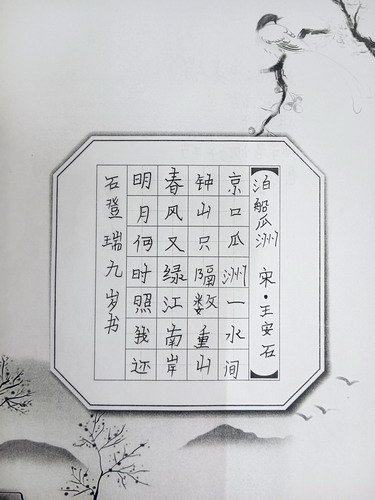 泊船瓜洲 宋·王安石
京口瓜洲一水间
钟山只隔数重山
春风又绿江南岸
明月何时照我还
石登瑞九岁书